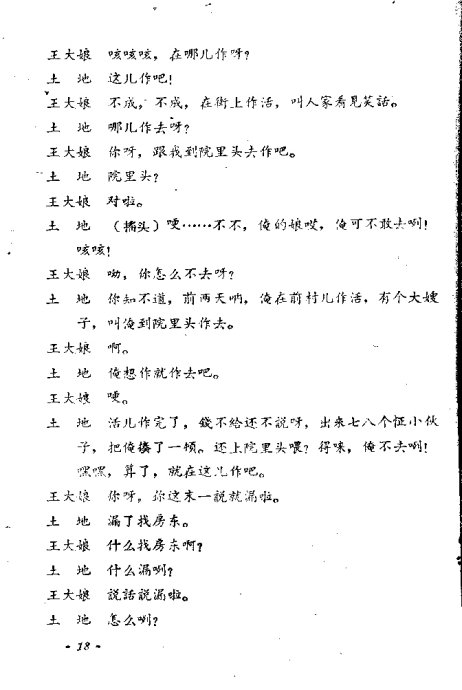 王大娘 咳咳咳，在哪儿作呀？
土 地 这儿作吧！
王大娘 不成，不成，在街上作活，叫人家看见笑話。
土 地 哪儿作去呀？
王大娘 你呀，跟我到院里头去作吧。
土 地 院里头？
王大娘 对啦。
土 地 （搖头）哽……不不，俺的娘哎，俺可不敢去咧！
咳咳！
王大娘 呦，你怎么不去呀？
土 地 你知不道，前两天哟，俺在前村儿作活，有个大嫂
子，叫俺到院里头作去。
王大娘 啊。
土 地 俺想作就作去吧。
王大娘 哽。
土 地 活儿作完了，錢不給还不說呀，出来七八个怔小伙
子，把俺揍了一頓。还上院里头喂？得咪，俺不去咧！
嘿嘿，算了，就在这儿作吧。
王大娘 你呀，你这末一說就漏啦。
土 地 漏了找房东。
王大娘 什么找房东啊？
土 地 什么漏咧？
王大娘 說話說漏啦。
土 地 怎么咧？
· 18 ·